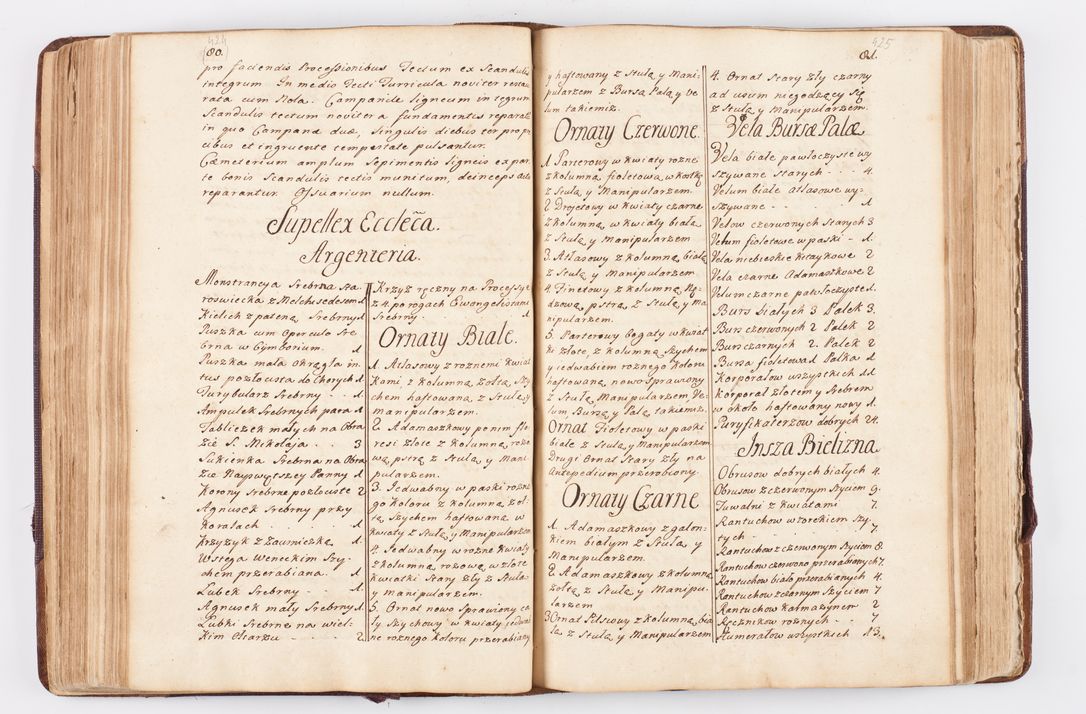 424
80.
pro faciendis Processionibus Tectum ex Scandulis
integrum In medio Tecti Turricula noviter restau
rata cum Nola. Campanile ligneum integrum
Scandulis tectum noviter a fundamentus reparata
in quo Campanæ duæ, singulis diebus ter pro pre
cibus et ingruente tempestate pulsantur.
Cæmeterium amplum Sepimentis ligneis ex par
te bonis Scandulis tectis munitum, deinceps
reparantur. Ossuarium nullum.
Supellex Eccleca.
Argenteria.
Monstrancya Srebrna sta
roswiecka z Melchisedesem 1
Kielich z pateną Srebrny 1
Puszka cum Operculo Sre
brna w Cymborium. 1
Puszka mała okrągła in
tus pozłocista do Chorych 1
Turybularz Srebrny . . 1.
Ampułek Srebrnych para 1
Tabliczek małych na Obra
zie S. Mikołaja . . . 3
Sukienka Srebrna na Obra
zie Nayswiętszey Panny 1
Korony Srebrne pozłociste 2
Agnusek Srebrny przy
Koralach . . . 1
Krzyzyk z Zausniczką 1.
Wstęga Weneckim Szy
chem przerabiana. 1
Lubek Srebrny . . 1.
Agnusek mały Srebrny 1
Lubki Srebrne na wiel-
kim Ołtarzu . . . 2.
Krzyz ręczny na Processye
z 4. po rogach Ewangelistami
Srebrny . . . 1
Ornaty Białe.
1. Atłasowy z roznemi kwiat
kami, z kolumną zołtą, Szy
chem haftowaną z Stułą y
manipularzem.
2. Adamaszkowy ponim flo
resi złote z Kolumną rozo
wą, pstrą z Stułą y Mani
pularzem.
3. Jedwabny w paski rozne
go Koloru z kolumną zoł
tą Szychem haftowaną w
kwiaty z Stułą y Manipularzem
4. Jedwabny w rozne kwiaty
z kolumną, rozową w złote
kwiatki Stary zły z Stułą
y manipularzem.
5. Ornat nowo Sprawiony ca
ły Szychowy w kwiaty jedwab
ne roznego koloru przerabiany
425
81.
y haftowany z Stułą y Mani-
pularzem z Bursą Palą y Ve
lum takiemiz.
Ornaty Czerwone.
1. Parterowy w kwiaty rozne
z kolumną, fioletową w kostkę
z Stułą y Manipularzem.
2. Drojetowy w kwiaty czarne
z kolumną, w kwiaty białą
z Stułą y Manipularzem
3. Atłasowy z kolumną, białą
z Stułą y Manipularzem
4. Finetowy z kolumną Rę-
dzową, pstrą z Stułą y Ma
nipularzem.
5. Parterowy bogaty w kwiat
ki złote, z kolumną Szychem
y jedwabiem roznego koloru
haftowaną, nowo Sprawiony
z Stułą Manipularzem Ve-
lum, Bursą y Palą takiemiz.
Ornat Fioletowy w paski
białe z Stułą y Manipularzem
Drugi Ornat Stary zły na
Antepedium przerobiony.
Ornaty Czarne
1. Adamaszkowy z galon-
kiem białym z Stułą y
Manipularzem.
2. Adamaszkowy z kolumną
zołtą z Stułą y Manipu-
larzem
3 Ornat Plisowy z kolumną, bia
łą z Stułą y Manipularzem
4. Ornat Stary zły czarny
ad usum niegodzący się
z Stułą y Manipularzem.
Vela Bursæ Palæ
Vela białe pawłoczyste wy
szywane Starych - - 4.
Velum białe atłasowe wy-
szywane . . . 1
Velow czerwonych Starych 3
Velum fioletowe w paski - 1.
Vela niebieskie Kitaykowe 2
Vela czarne Adamaszkowe 2
Velum czarne pawłoczyste 1.
Burs białych 3 Palek 3.
Burs czerwonych 2 Palek 2
Burs czarnych 2. Palek 2
Bursa fioletowa 1 Palka 1
Korporałow wszystkich 11.
Korporał złotem y Srebrem
w około haftowany nowy 1.
Puryfikaterzow dobrych 24.
Insza Bielizna
Obrusow dobrych białych 4.
Obrusow z czerwonym Szyciem 9.
Tuwalni z kwiatami 7.
Rantuchow wzorekiem Szy-
tych . . . 7
Rantuchow z czerwonym Szyciem 8.
Rantuchow czerwono przerabianych 7.
Rantuchow biało przerabianych 4.
Rantuchow z czarnym Szyciem 7
Rantuchow karmazynem 2
Ręcznikow roznych . . 7
Humerałow wszystkich 13.